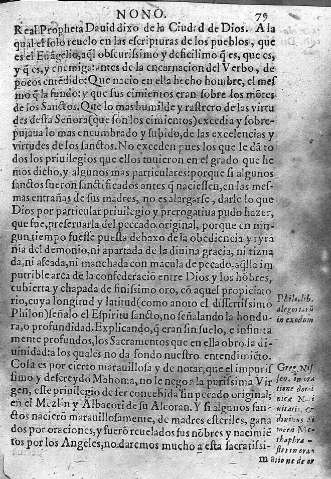 NONO. 79
Real Propheta Dauid dixo de la Ciudad de Dios. A la
qual el solo reuelo en las escripturas de los pueblos, que
es el Euãgelio, aql obscurissimo y deficilimo q es, que es,
y q es, y que antes de la encarnacion del Verbo, de
pocos entẽdido: Que nacio en ella hecho hombre, el mes
mo q la fundo: y que sus cimientos eran sobre los mõtes
de los Sanctos. Que lo mas humilde y rastrero de las virtu
des desta Señora (que son los cimientos) excedia y sobre-
pujaua lo mas encumbrado y subido, de las excelencias y
virtudes de los sanctos. No exceden pues los que le dã to
dos los priuilegios que ellos tuuieron en el grado que he
mos dicho, y algunos mas particulares: porque si algunos
sanctos fuerõn sanctificados antes q naciessen, en las mes-
mas entrañas de sus madres, no es alargarse, darle lo que
Dios por particular priuilegio y prerogatiua pudo hazer,
que fue, preseruarla del peccado original, porque en nin-
gun tiempo fuesse puesta debaxo de la obediencia y tyra
nia del demonio, ni apartada de la diuina gracia, ni tizna
da, ni afeada, ni manchada con macula de pecado, aqlla im
putrible arca de la confederacion entre Dios y los hõbres,
cubierta y chapada de finissimo oro, cõ aquel propiciato-
rio, cuya longitud y latitud (como anoto el discretissimo
Philon) señalo el Espiritu sancto, no señalando la hondu-
ra, o profundidad. Explicando, q eran sin suelo, e infinita
mente profundos, los Sacramentos que en ella obro la di-
uinidad: a los quales no da fondo nuestro entendimiẽto.
Cosa es por cierto marauillosa y de notar, que el impuris
simo y descreydo Mahoma, no le nego a la purissima Vir
gen, este priuilegio de ser concebida sin peccado original,
en el Mezlin y Albacoti de su Alcoran. Y si algunos san-
ctos nacierõ marauillosamente, de madres esteriles, gana
dos por oraciones, y fuerõ reuelados sus nõbres y nacimiẽ
tos por los Angeles, no daremos mucho a esta sacratissi-
Philo. lib.
alegoriarũ
in exodum
Greg. Nis
seo. in ora
tione domi
nica Nati
uitatis.
Simeon Me
thaphra-
ster in oran